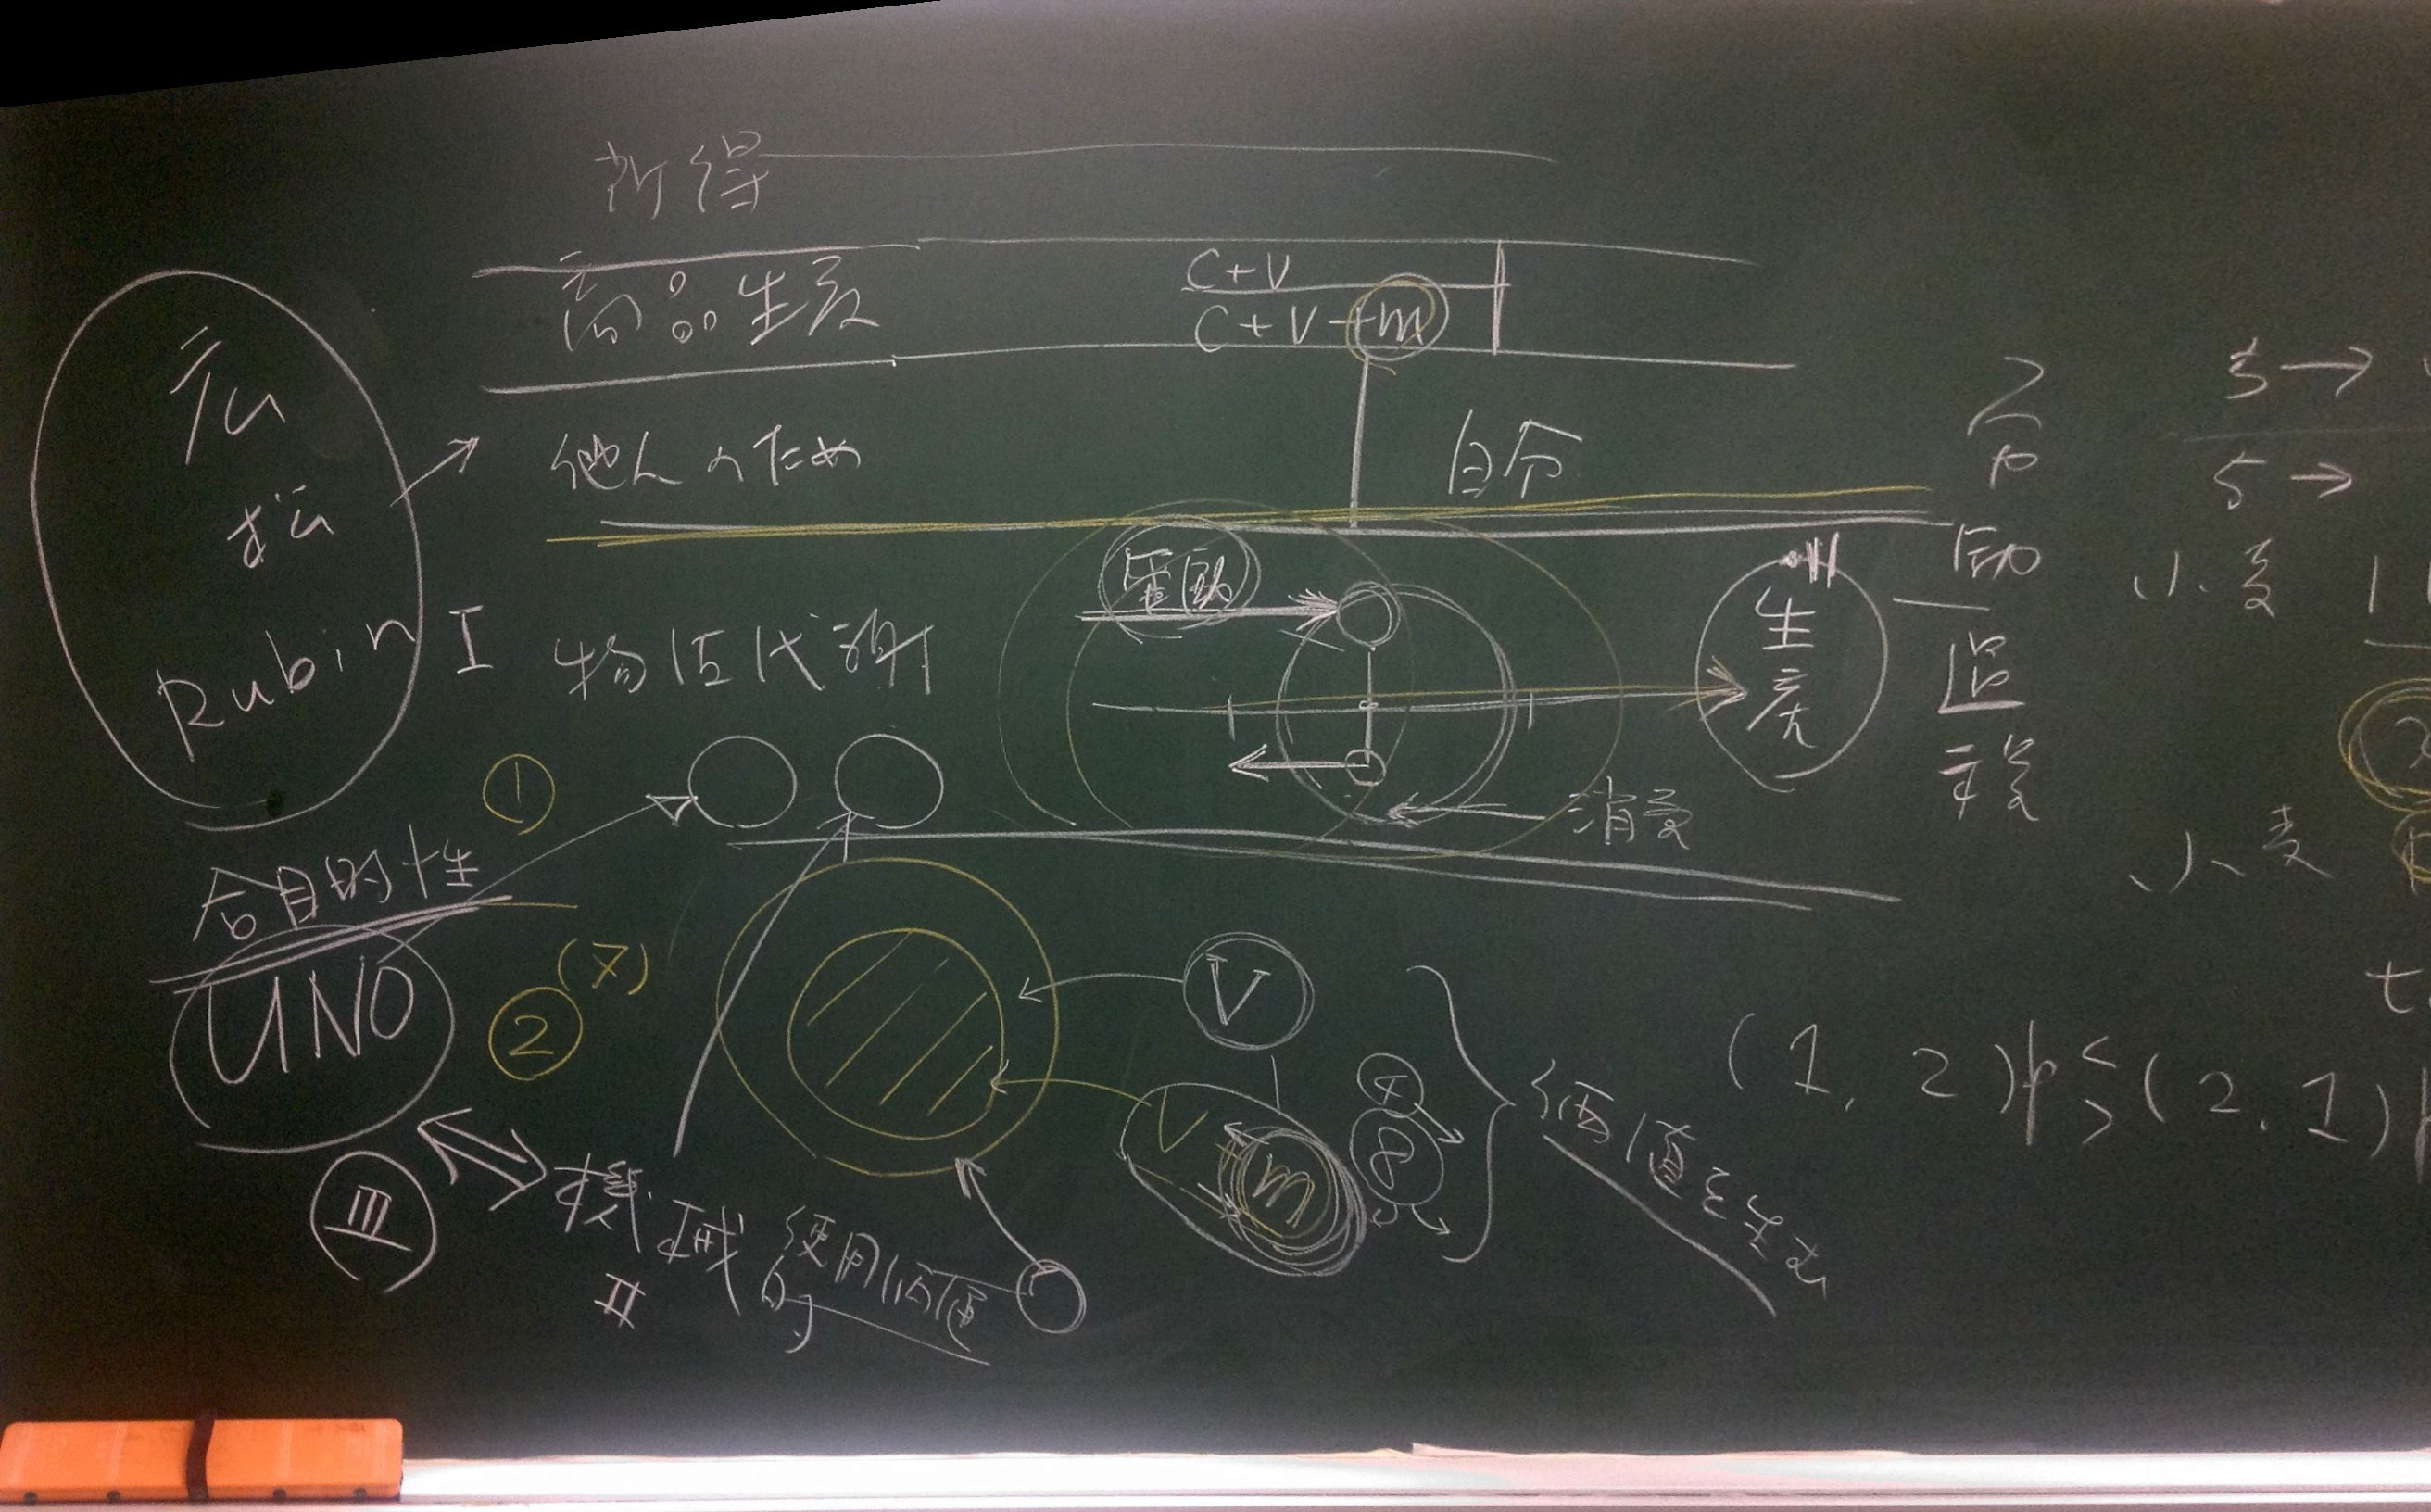 所得
商品生産
C+V
C+V+m
他人のため
自分
広
松
Rubin
I 物質代謝
労働
生産
消費
小麦
小麦
5→
5→
①
合目的性
UNO
② (7)
V
V m
8
価値を生む
(1, 2)p <> (2, 1)p
III
機械的
II
使用価値
t